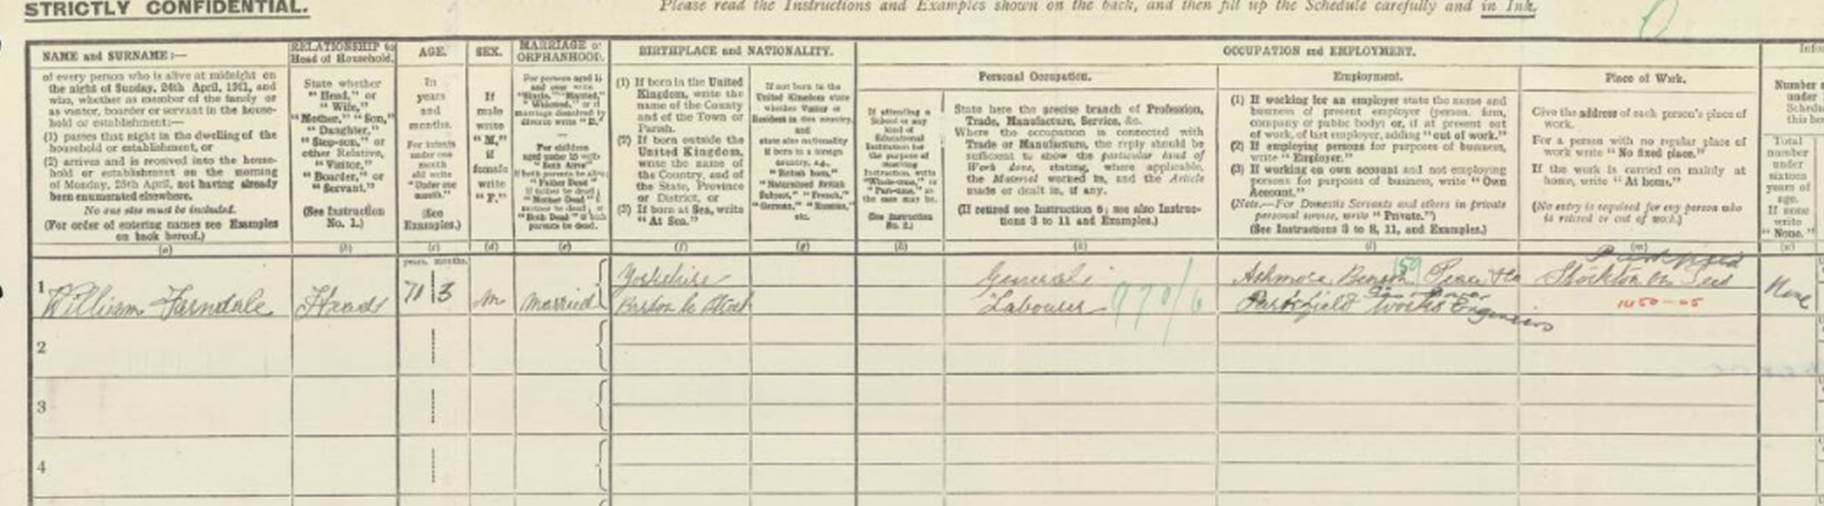 STRICTLY CONFIDENTIAL.
Please read the Instructions and Examples shown on the back, and then fill up the Schedule carefully and in Ink.
NAME and SURNAME:—
of every person who is alive at midnight on
the night of Sunday, 24th April, 1921, and
who, whether as member of the family or
as visitor, boarder or servant in the house-
hold or establishment:—
(1) passes that night in the dwelling of the
household or establishment, or
(2) arrives and is received into the house-
hold or establishment on the morning
of Monday, 25th April, not having already
been enumerated elsewhere.
No one else must be included.
(For order of entering names see Examples
on back hereof.)
(a)
RELATIONSHIP to
Head of Household.
State whether
"Head," or
"Wife,"
"Mother," "Son,"
"Daughter,"
"Step-son," or
other Relative,
"Visitor,"
"Boarder," or
"Servant."
(See Instruction
No. 1.)
(b)
AGE.
In
years
and
months.
For infants
under one
month
old write
"Under one
month."
(See
Examples.)
(c)
SEX.
If
male
write
"M,"
if
female
write
"F."
(d)
MARRIAGE or
ORPHANHOOD.
For persons aged 15
and over write
"Single," "Married,"
"Widowed," or if
marriage dissolved by
divorce write "D."
For children
aged under 15 write
If both parents be alive
"Both Alive"
"Father Dead"
if father be dead
"Mother Dead" if
mother be dead
"Both Dead" if both
parents be dead.
(e)
BIRTHPLACE and NATIONALITY.
(1) If born in the United
Kingdom, write the
name of the County
and of the Town or
Parish.
(2) If born outside the
United Kingdom,
write the name of
the Country, and of
the State, Province
or District, or
(3) If born at Sea, write
"At Sea."
(f)
If not born in the
United Kingdom state
whether Visitor or
Resident in this country,
and
state also nationality
if born in a foreign
country, e.g.,
"British born,"
"Naturalised British
Subject," "French,"
"German," "Russian,"
etc.
(g)
OCCUPATION and EMPLOYMENT.
If attending a
School or any
kind of
Educational
Institution for
the purpose of
receiving
Instruction, write
"Whole-time," or
"Part-time," as
the case may be.
(See Instruction
No. 2.)
(h)
Personal Occupation.
State here the precise branch of Profession,
Trade, Manufacture, Service, &c.
Where the occupation is connected with
Trade or Manufacture, the reply should be
sufficient to show the particular kind of
Work done, stating, where applicable,
the Material worked in, and the Article
made or dealt in, if any.
(If retired see Instruction 6; see also Instruc-
tions 3 to 11 and Examples.)
(k)
Employment.
(1) If working for an employer state the name and
business of present employer (person, firm,
company or public body) or, if at present out
of work, of last employer, adding "out of work."
(2) If employing persons for purposes of business,
write "Employer."
(3) If working on own account and not employing
persons for purposes of business, write "Own
Account."
(Note.—For Domestic Servants and others in private
personal service, write "Private.")
(See Instructions 3 to 8, 11, and Examples.)
(l)
Place of Work.
Give the address of each person's place of
work.
For a person with no regular place of
work write "No fixed place."
If the work is carried on mainly at
home, write "At home."
(No entry is required for any person who
is retired or out of work.)
(m)
Number
under
this
Total
number
under
sixteen
years of
age.
If none
write
"None."
(n)
years. months.
1 William Farndale Head 71 3 M Married
Yorkshire
General
Labourer
970/6
Ashmore Benson Pease & Co
Parkfield Works
Engineers
Stockton on Tees
1450-05
None
2
3
4